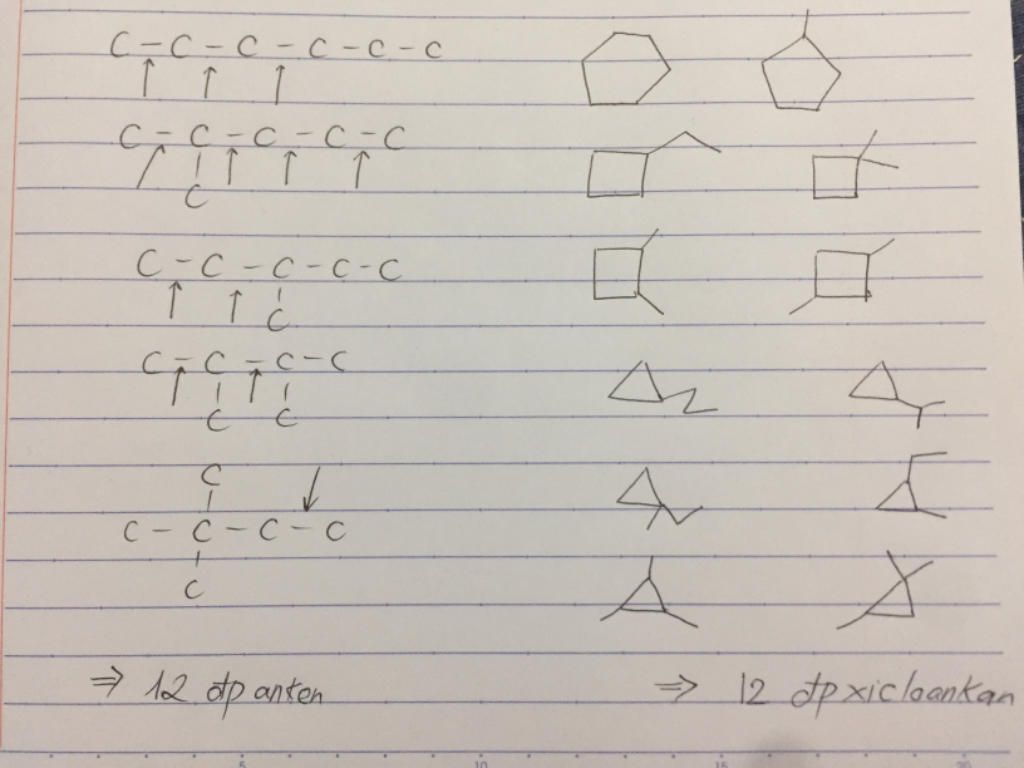 C - C - C - C - C - C
C - C - C - C - C
C
C - C - C - C - C
C
C - C - C - C
C C
C
C - C - C - C
C
⇒ 12 đp anken ⇒ 12 đp xicloankan
5 10 15 20